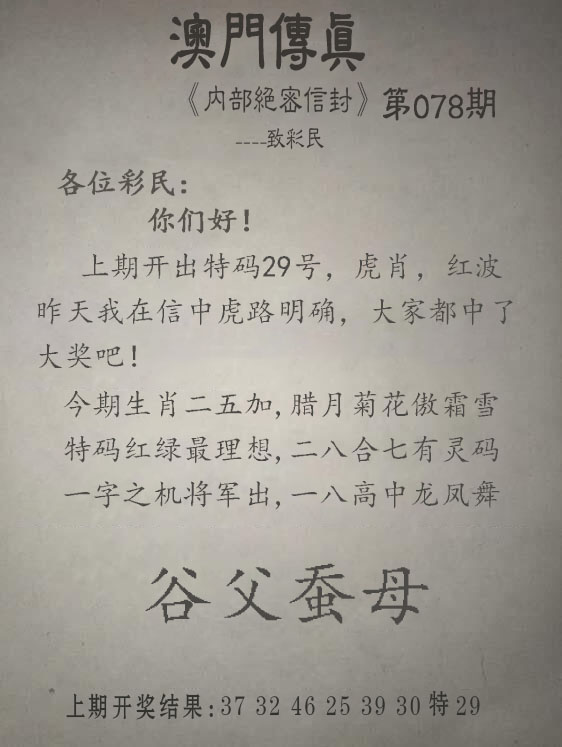 澳門傳真
《内部絕密信封》第078期
----致彩民
各位彩民:
你们好!
上期开出特码29号，虎肖，红波
昨天我在信中虎路明确，大家都中了
大奖吧!
今期生肖二五加,腊月菊花傲霜雪
特码红绿最理想,二八合七有灵码
一字之机将军出,一八高中龙凤舞
谷父蚕母
上期开奖结果:37 32 46 25 39 30 特 29